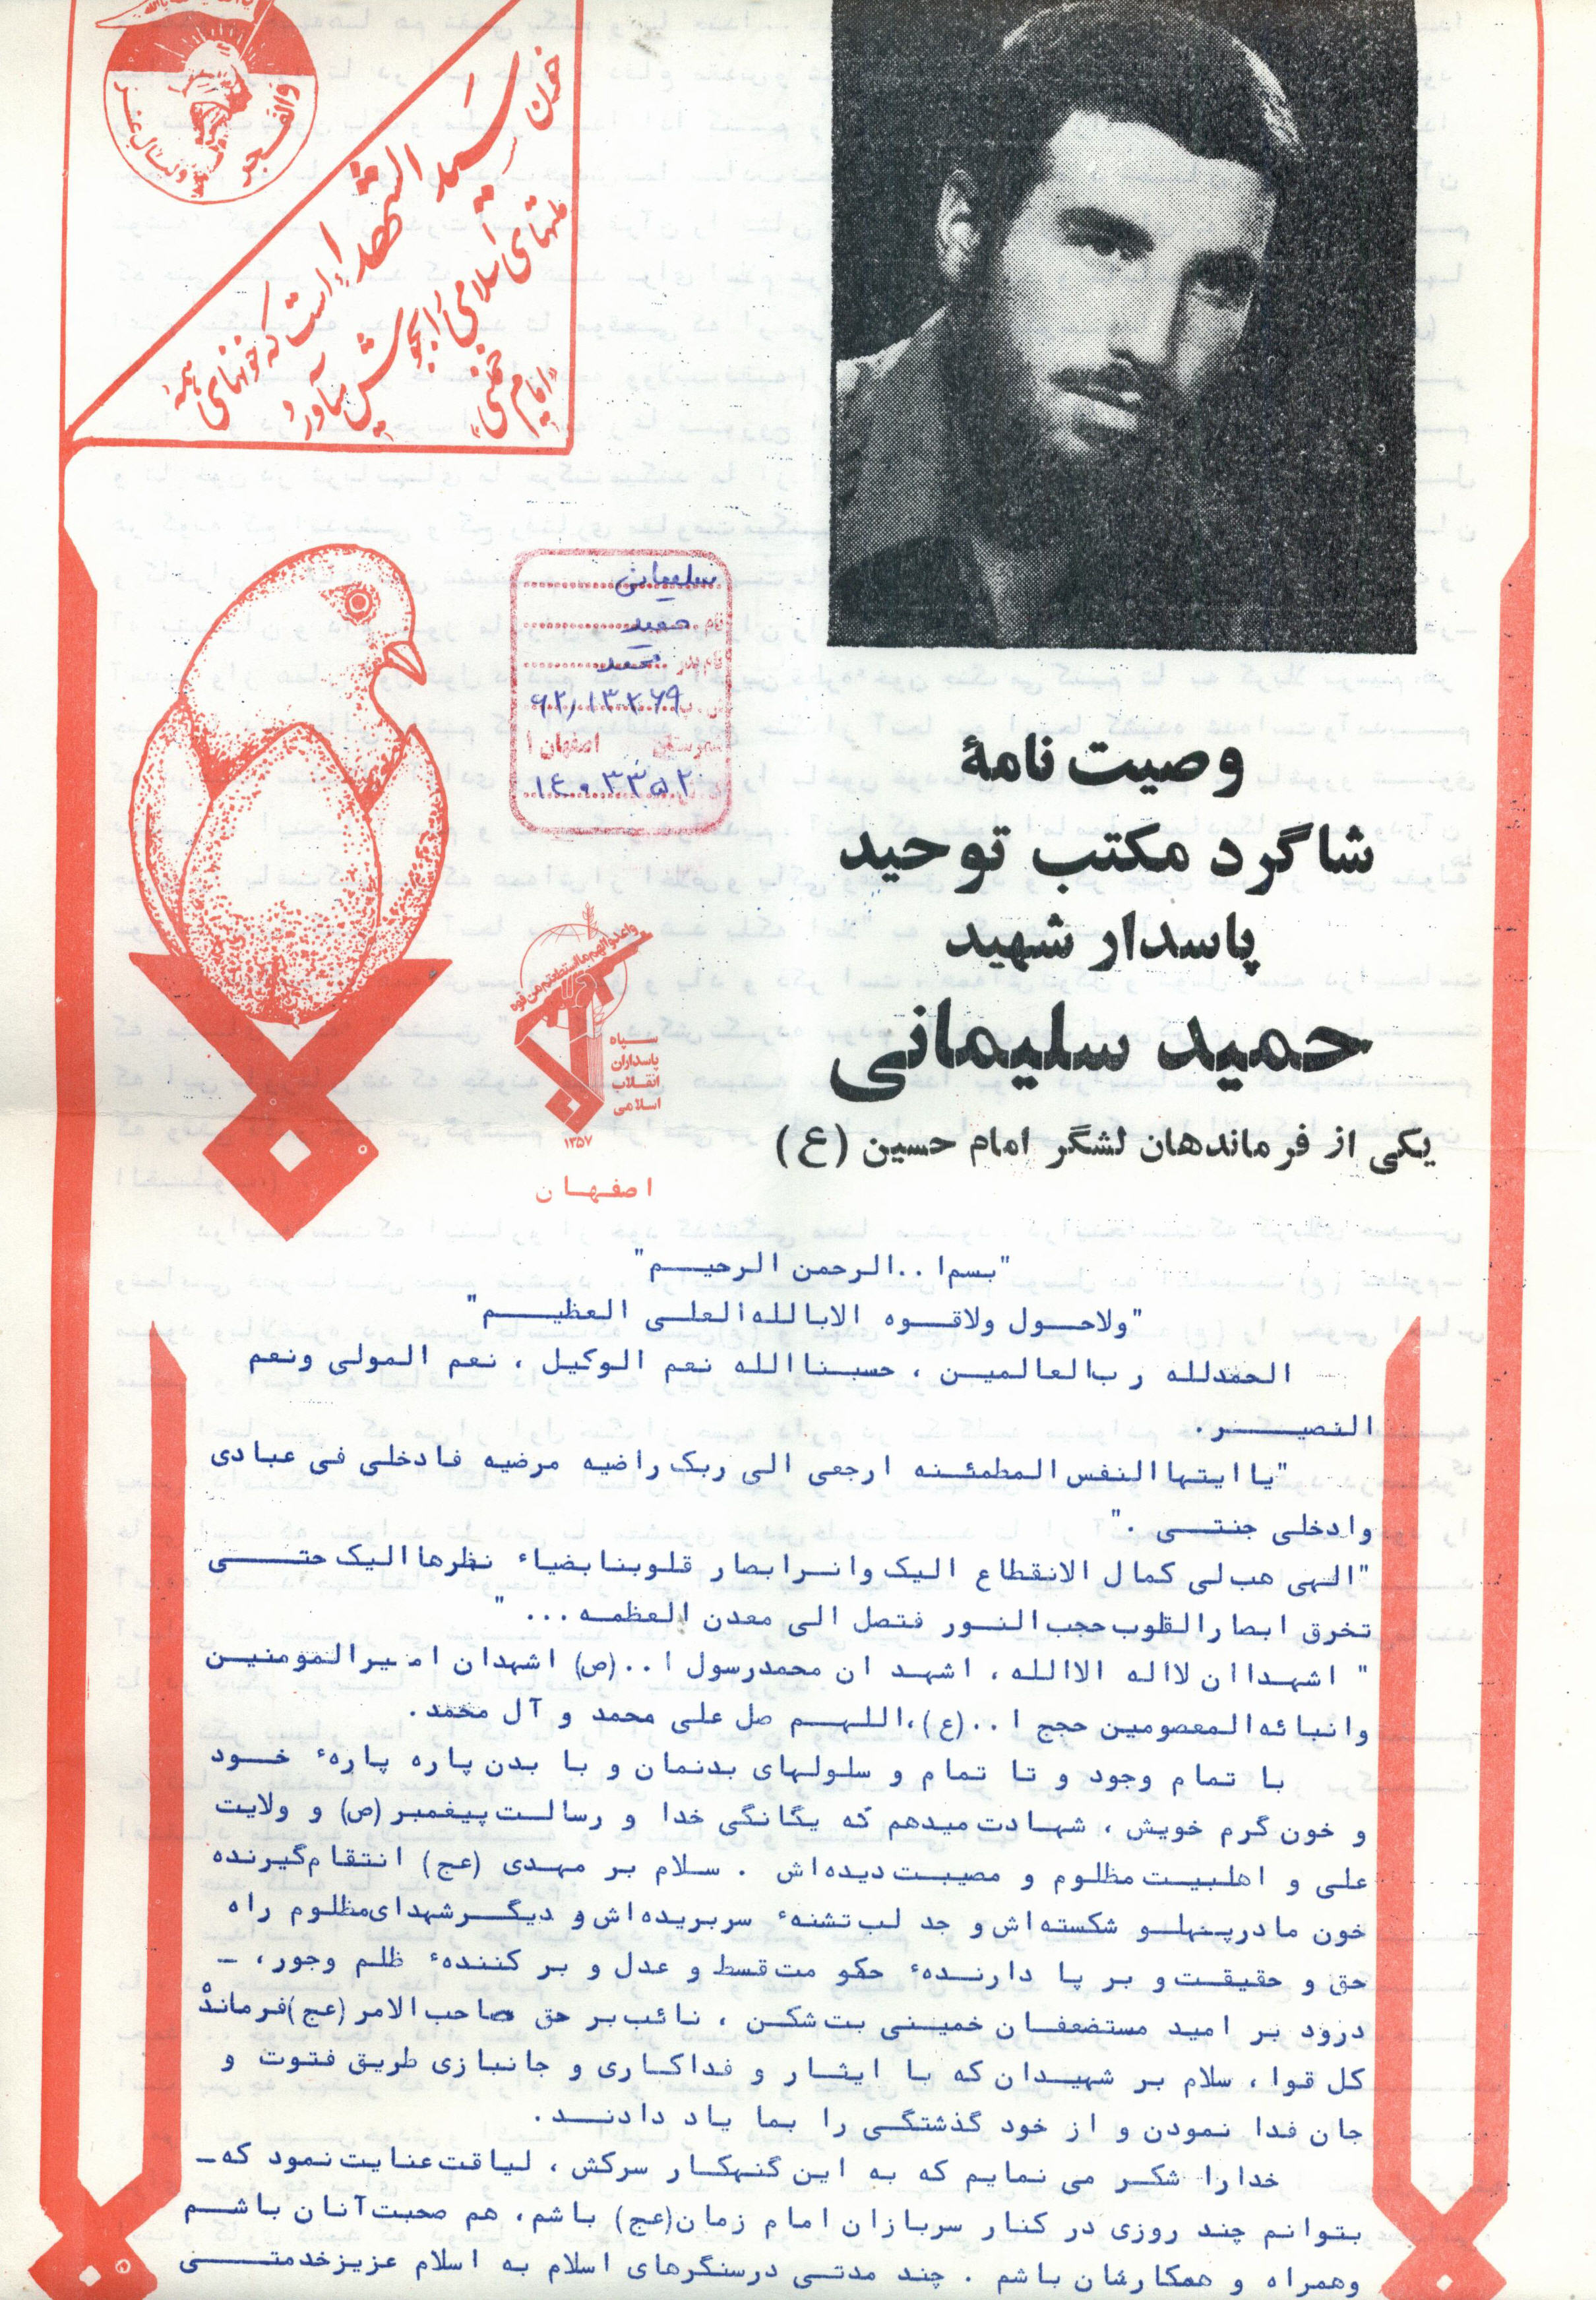 والفجر
ولیال عشر
خون سیدالشهداء است که خونهای همهٔ
ملتهای اسلامی را بجوش میآورد
"امام خمینی"
سلیمانی
نام حمید
نام پدر محمد
۶۲/۱۳۲۶۹
شهرستان اصفهان ۱
۱۴۰۳۳۵۲
وصیت نامهٔ
شاگرد مکتب توحید
پاسدار شهید
حمید سلیمانی
یکی از فرماندهان لشگر امام حسین (ع)
واعدوا لهم ما استطعتم من قوه
سپاه
پاسداران
انقلاب
اسلامی
۱۳۵۷
اصفهان
"بسم ا.. الرحمن الرحیم"
"ولاحول ولاقوه الابالله العلی العظیم"
الحمدلله رب العالمین ، حسبنا الله نعم الوکیل ، نعم المولی ونعم
النصیر.
"یا ایتها النفس المطمئنه ارجعی الی ربک راضیه مرضیه فادخلی فی عبادی
وادخلی جنتی ."
"الهی هب لی کمال الانقطاع الیک وانر ابصار قلوبنا بضیاء نظرها الیک حتی
تخرق ابصار القلوب حجب النور فتصل الی معدن العظمه ... "
" اشهدان لااله الاالله ، اشهد ان محمدرسول ا..(ص) اشهدان امیرالمومنین
وانبائه المعصومین حجج ا..(ع)،اللهم صل علی محمد و آل محمد.
با تمام وجود و تا تمام و سلولهای بدنمان و با بدن پاره پارهء خود
و خون گرم خویش ، شهادت میدهم که یگانگی خدا و رسالت پیغمبر (ص) و ولایت
علی و اهلبیت مظلوم و مصیبت دیده‌اش . سلام بر مهدی (عج) انتقام گیرنده
خون مادر پهلو شکسته‌اش و جد لب تشنهء سربریده‌اش و دیگر شهدای مظلوم راه
حق و حقیقت و بر پا دارندهء حکومت قسط و عدل و بر کنندهء ظلم وجور، –
درود بر امید مستضعفان خمینی بت شکن ، نائب بر حق صاحب الامر (عج) فرماندهٔ
کل قوا ، سلام بر شهیدان که با ایثار و فداکاری و جانبازی طریق فتوت و
جان فدا نمودن و از خود گذشتگی را بما یاد دادند.
خدارا شکر می نمایم که به این گنهکار سرکش ، لیاقت عنایت نمود که–
بتوانم چند روزی در کنار سربازان امام زمان(عج) باشم، هم صحبت آنان باشم
وهمراه و همکارشان باشم . چند مدتی درسنگرهای اسلام به اسلام عزیز خدمتی